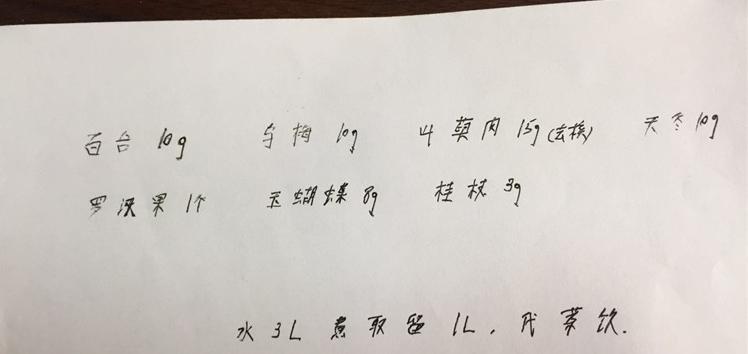 百合 10g 乌梅 10g 山萸肉 15g(去核) 天冬 10g
罗汉果 1个 玉蝴蝶 8g 桂枝 3g
水 3L 煮取留 1L,代茶饮.